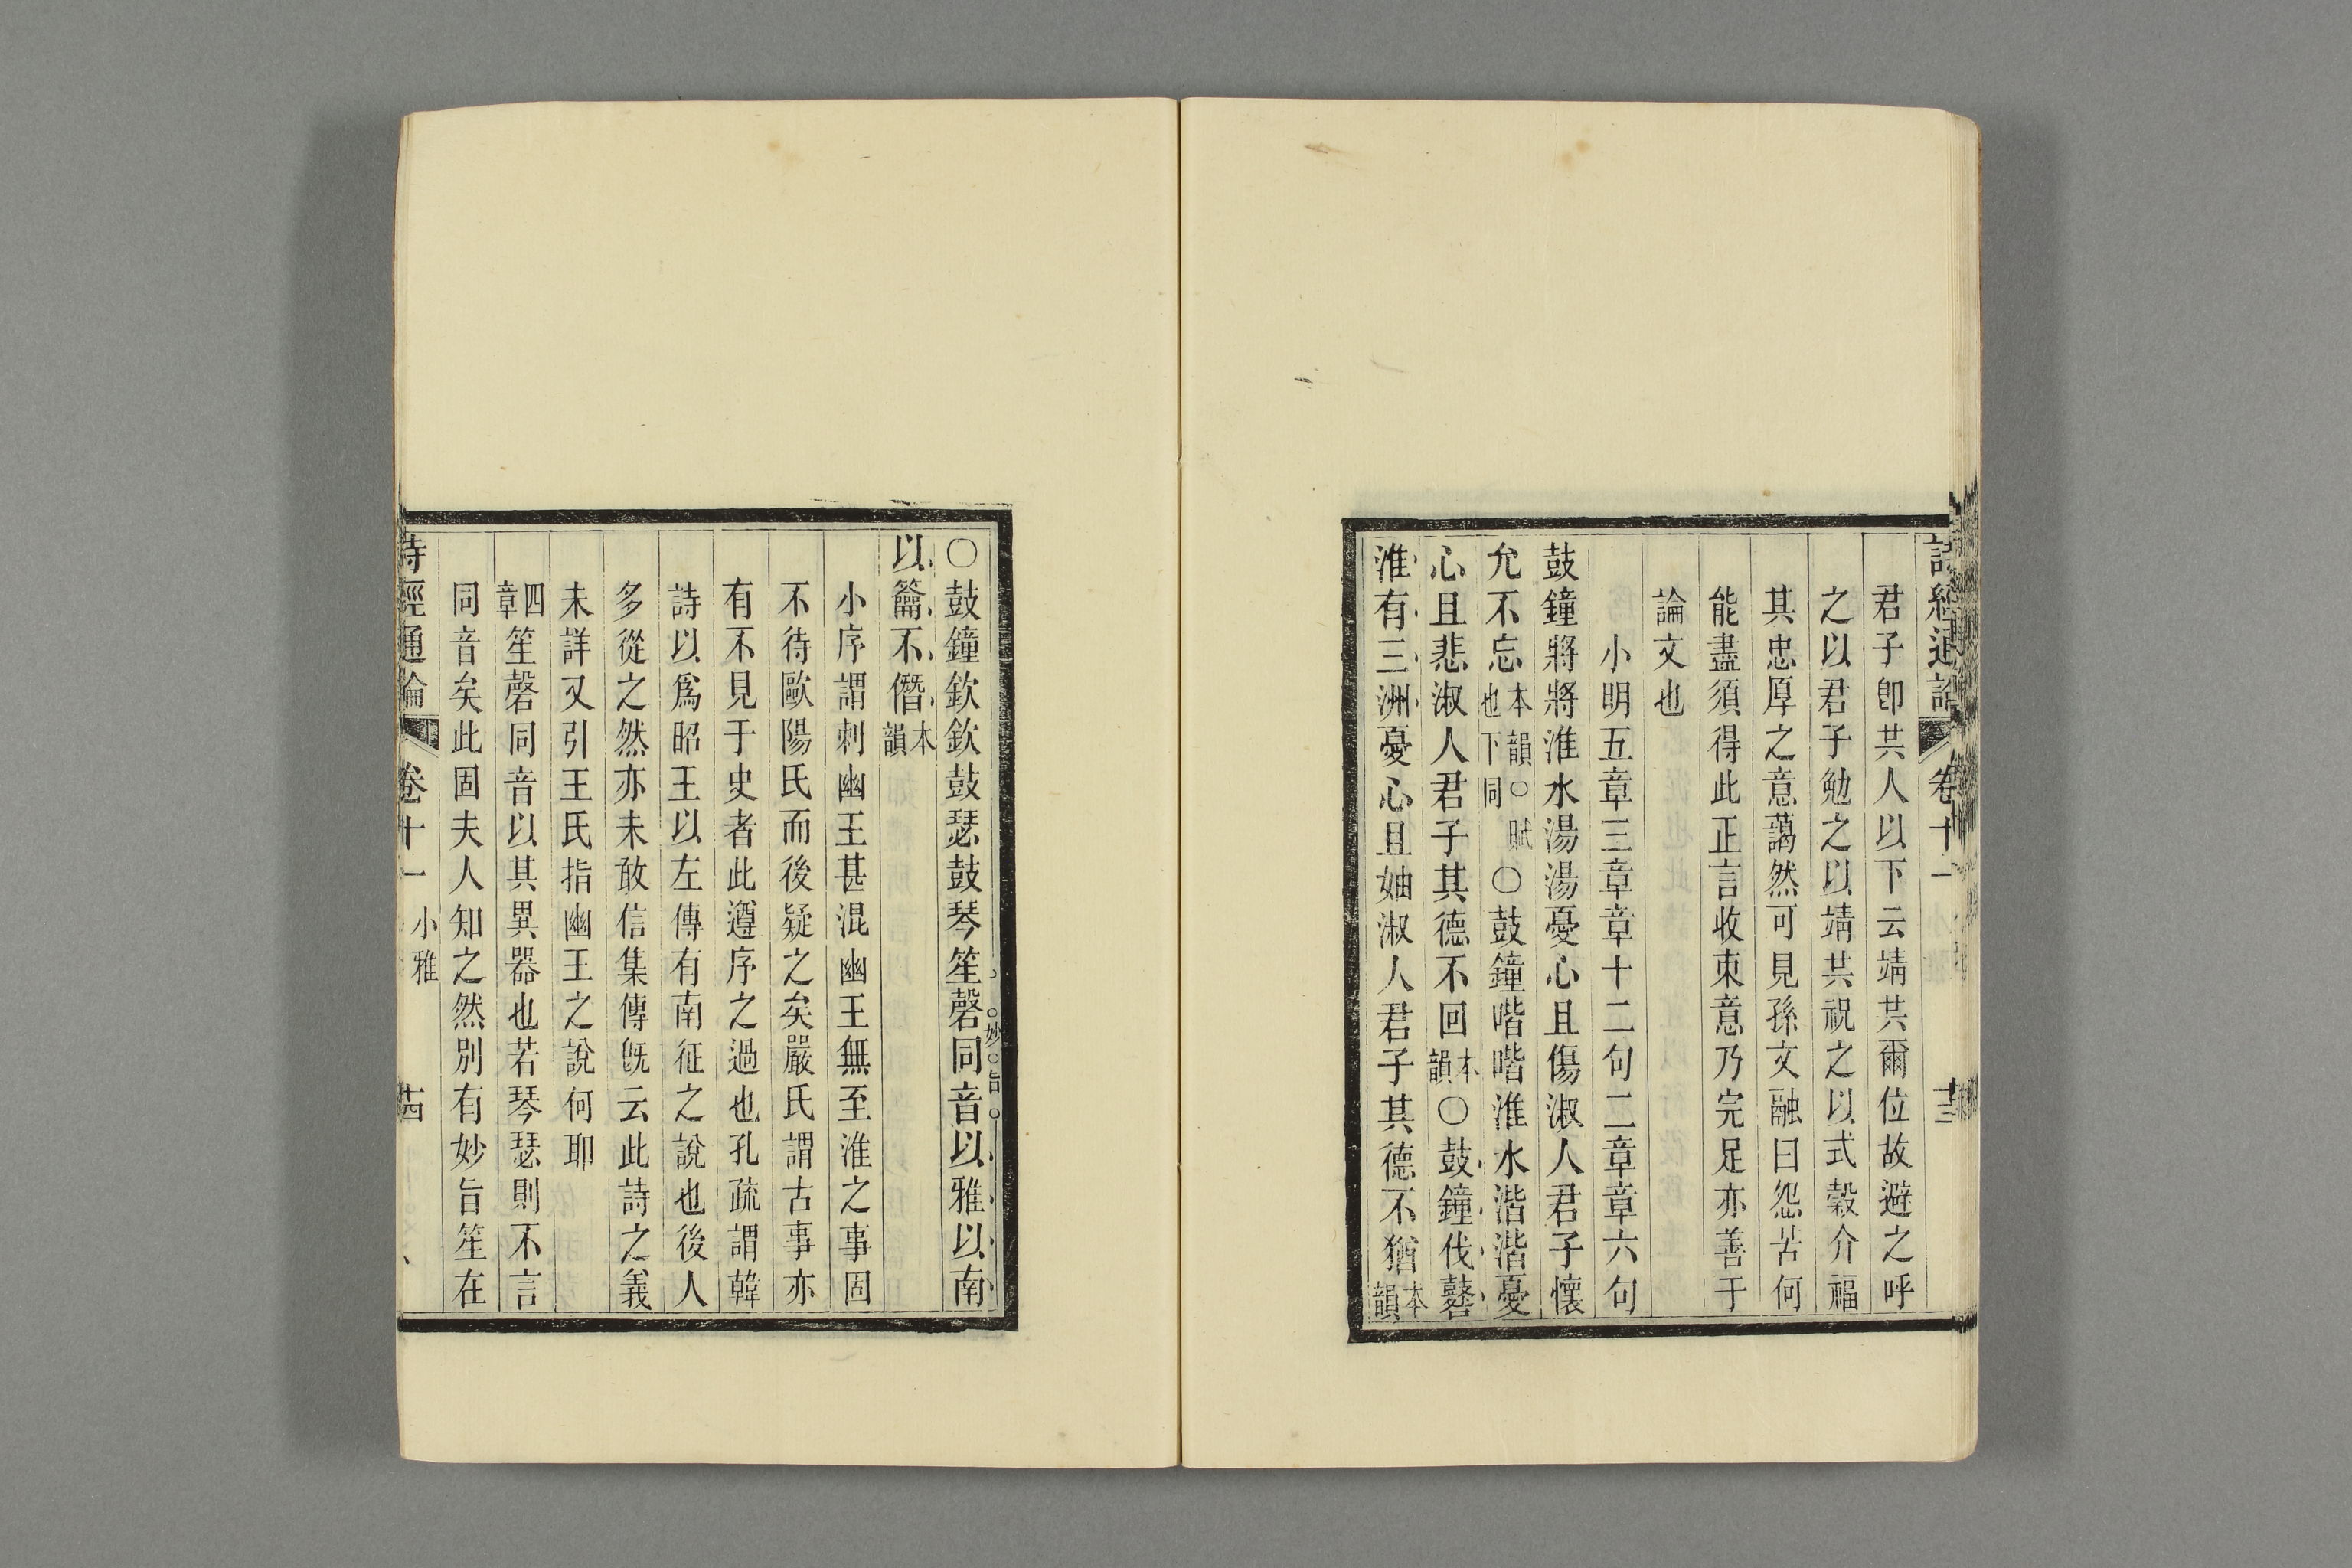 詩經通論 卷十一 十三
君子卽共人以下云靖共爾位故避之呼
之以君子勉之以靖共祝之以式穀介福
其忠厚之意藹然可見孫文融曰怨苦何
能盡須得此正言收束意乃完足亦善于
論文也
小明五章三章章十二句二章章六句
鼓鐘將將淮水湯湯憂心且傷淑人君子懷
允不忘本韻○賦也下同○鼓鐘喈喈淮水湝湝憂
心且悲淑人君子其德不回本韻○鼓鐘伐鼛
淮有三洲憂心且妯淑人君子其德不猶本韻
○鼓鐘欽欽鼓瑟鼓琴笙磬同音以雅以南
妙旨
以籥不僭本韻
小序謂刺幽王甚混幽王無至淮之事固
不待歐陽氏而後疑之矣嚴氏謂古事亦
有不見于史者此遵序之過也孔疏謂韓
詩以爲昭王以左傳有南征之說也後人
多從之然亦未敢信集傳旣云此詩之義
未詳又引王氏指幽王之說何耶
四章笙磬同音以其異器也若琴瑟則不言
同音矣此固夫人知之然別有妙旨笙在
詩經通論 卷十一 小雅 十四